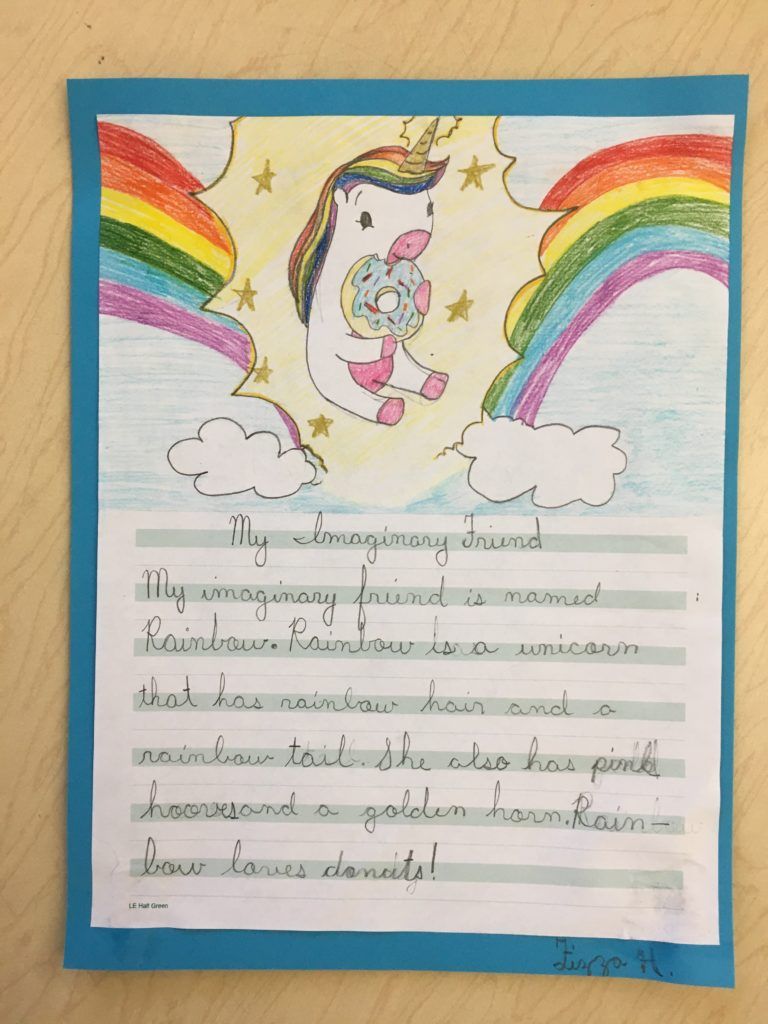 My Imaginary Friend
My imaginary friend is named
Rainbow. Rainbow is a unicorn
that has rainbow hair and a
rainbow tail. She also has pink
hooves and a golden horn. Rain-
bow loves donuts!
LE Half Green
Lizza H.